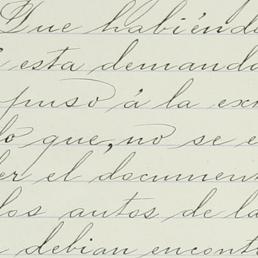 Que habiéndo
esta demanda
puso á la ex
lo que, no se e
er el documen
los autos de la
debian encont